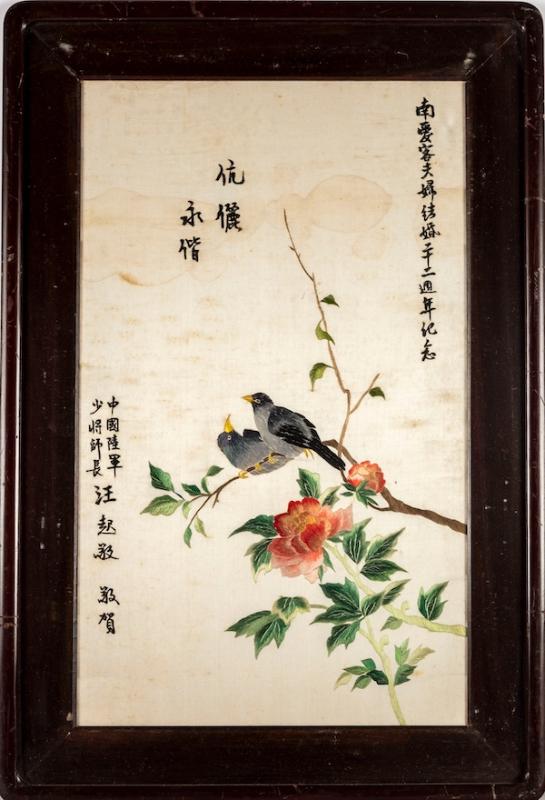 南愛客夫婦結婚二十二週年紀念
伉儷
永偕
中國陸軍
少將師長
汪起敬 敬賀